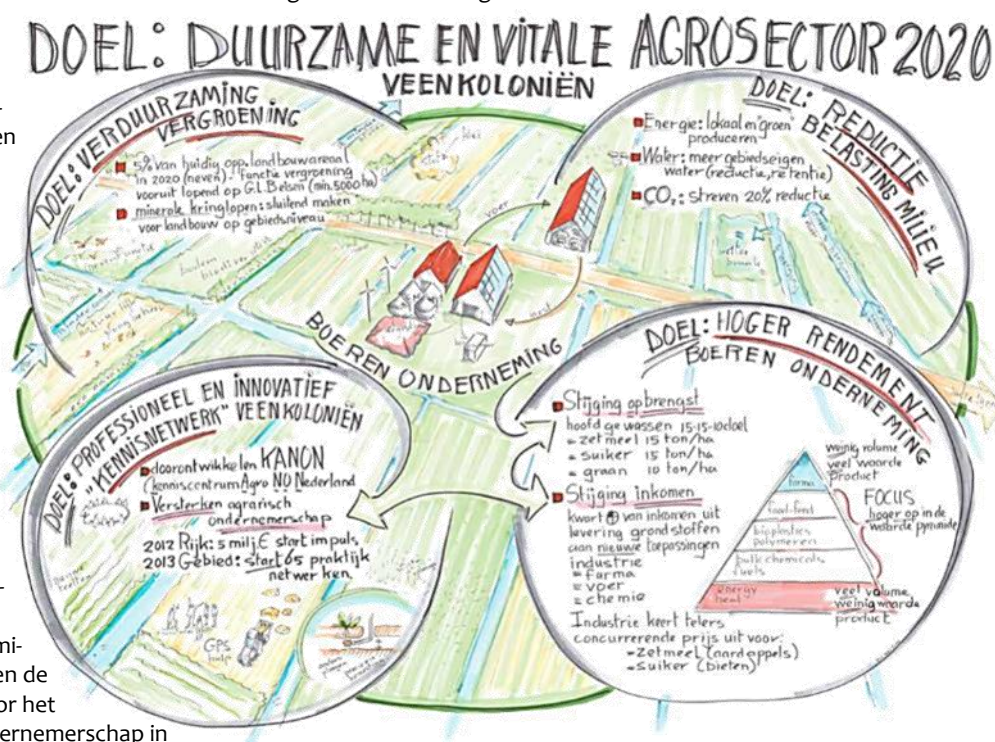 DOEL: DUURZAME EN VITALE AGROSECTOR 2020
VEENKOLONIËN
DOEL: VERDUURZAMING
VERGROENING
5% van huidig opp. landbouwareaal
in 2020 (neven)-functie vergroening
vooruit lopend op G.L.Belsm (min.5000 ha)
minerale kringlopen: sluitend maken
voor landbouw op gebiedsniveau
DOEL: REDUCTIE
BELASTING MILIEU
Energie: lokaal en "groen"
produceren
Water: meer gebiedseigen
water (reductie, retentie)
CO₂: streven 20% reductie
voer
mest
BOEREN ONDERNEMING
DOEL: PROFESSIONEEL EN INNOVATIEF
"KENNISNETWERK" VEENKOLONIËN
doorontwikkelen KANON
(kenniscentrum Agro NO Nederland
Versterken agrarisch
ondernemerschap
2012 Rijk: 5 milj € start impuls,
2013 Gebied: start 65 praktijk
netwerken
GPS
DOEL: HOGER RENDEMENT
BOEREN ONDERNEMING
Stijging opbrengst
hoofd gewassen 15-15-10 doel
= zetmeel 15 ton/ha
= suiker 15 ton/ha
= graan 10 ton/ha
Stijging inkomen
kwart van inkomen uit
levering grondstoffen
aan nieuwe toepassingen
industrie
= farma
= voer
= chemie
Industrie keert telers
concurrerende prijs uit voor:
- zetmeel (aardappels)
- suiker (bieten)
weinig volume
veel waarde
product
farma
food-feed
bioplastics
polymeren
bulk chemicals
fuels
energy
heat
FOCUS
hoger op in de
waarde pyramide
veel volume
weinig waarde
product
en
en de
or het
ernemerschap in